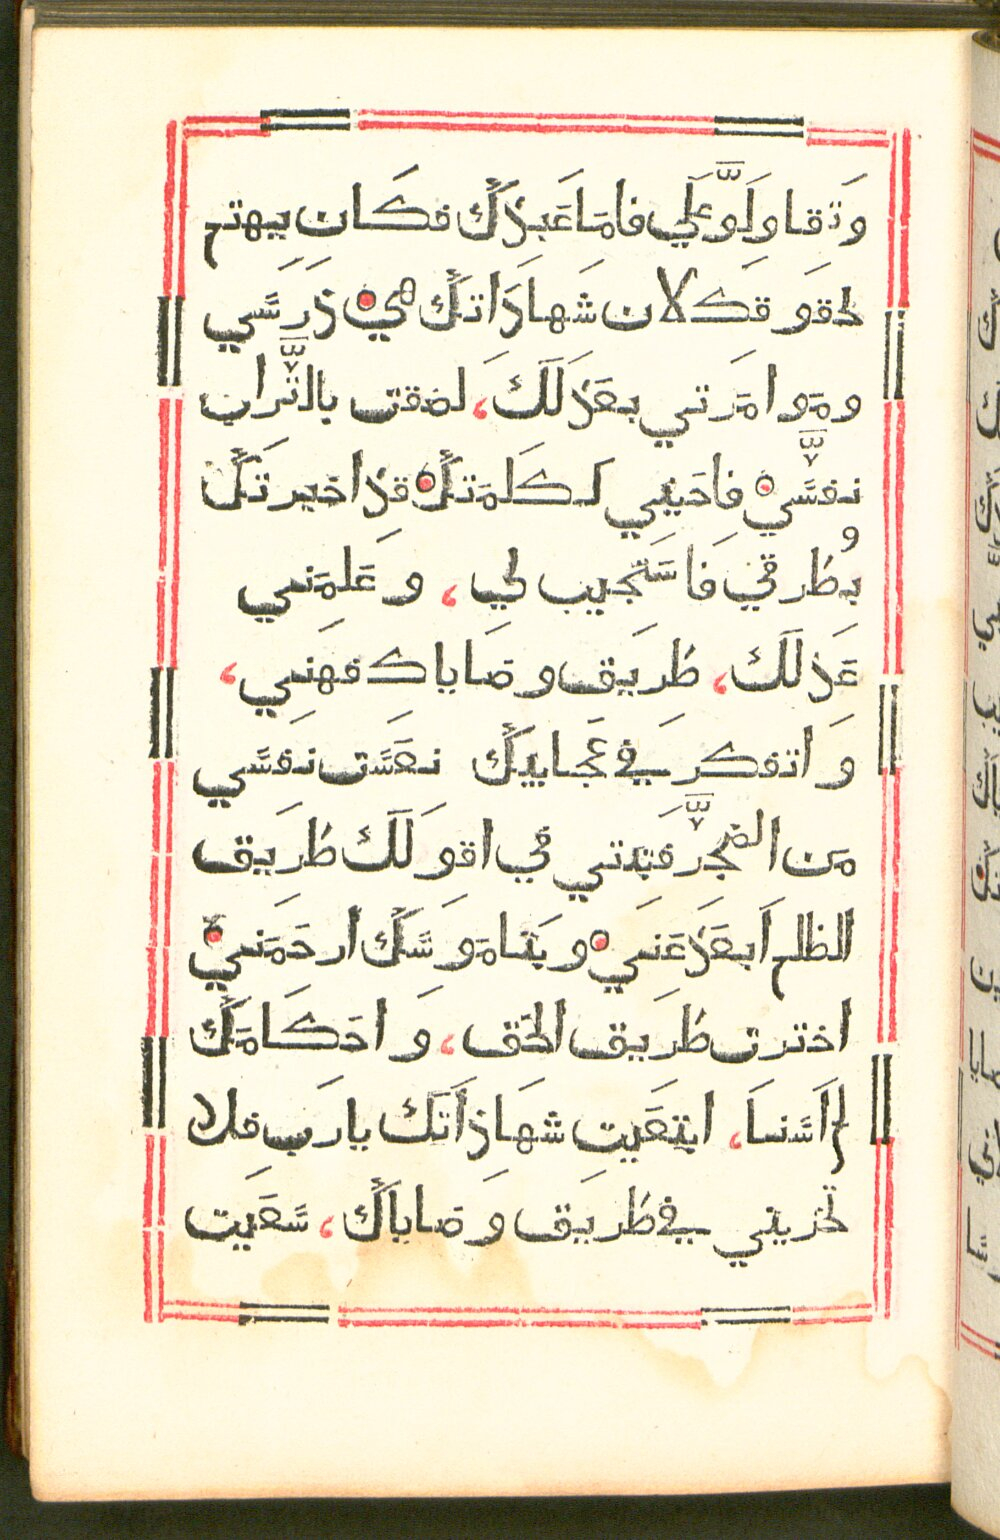 وَتقاولَوَّ علَي فامَا عَبدَكَ فكَان يهتم
لحقوقك لان شهادَاتكَ هي دَرسَي
ومَوامَرتي بعَدَلَكَ، لصقت بالتَّراب
نفسَي فاحَييني ككلمَتكَ قدَ اخبرتكَ
بُطرقي فَاسَتجيب لي، وعَلمَني
عَدَلَكَ، طرَيق وصَاياك فهمَني،
وَاتفكر في عجَايبكَ نعَسَت نفسَي
مَن الضجَّر فَثبتني في اقوَلَكَ طرَيق
الظلم اَبعَدَ عَنَي وبنَامَوسَكَ ارحَمَني
اخترت طرَيق الحَق، وَاحكَامَكَ
لم اَسَنسا، ابتغَيت شهَادَاتَكَ يا رَب فلا
تخزيني في طرَيق وَصَاياكَ، سَعَيت